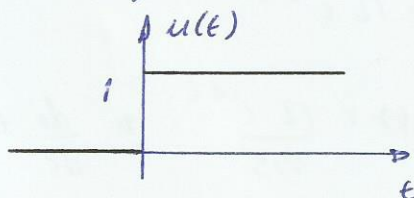 u(t)
1
t